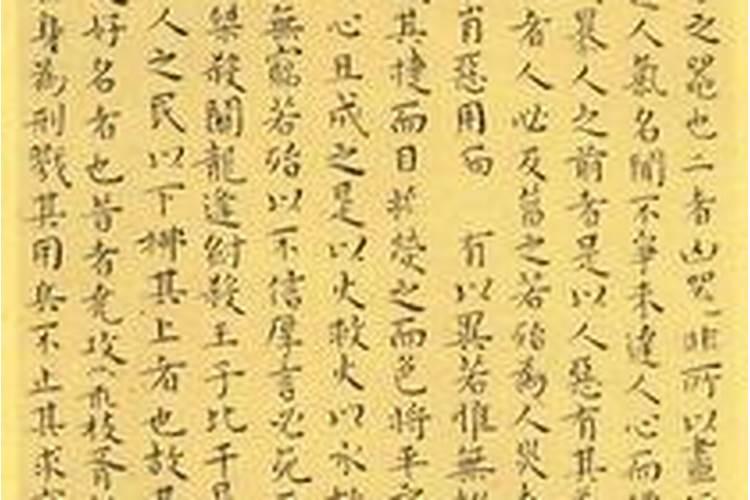 之噐也二者凶咒非所以盡
人氣名聞不爭未達人心而
暴人之前者是以人惡有其
者人必反菑之若殆為人災
肖惡用而 有以異若惟無
其捷而目將熒之而色將平
心且成之是以火救火以水
無窮若殆以不信厚言必死
桀殺關龍逢紂殺王子比干
人之民以下拂其上者也故
好名者也昔者堯攻枝胥
身為刑戮其用兵不止其求